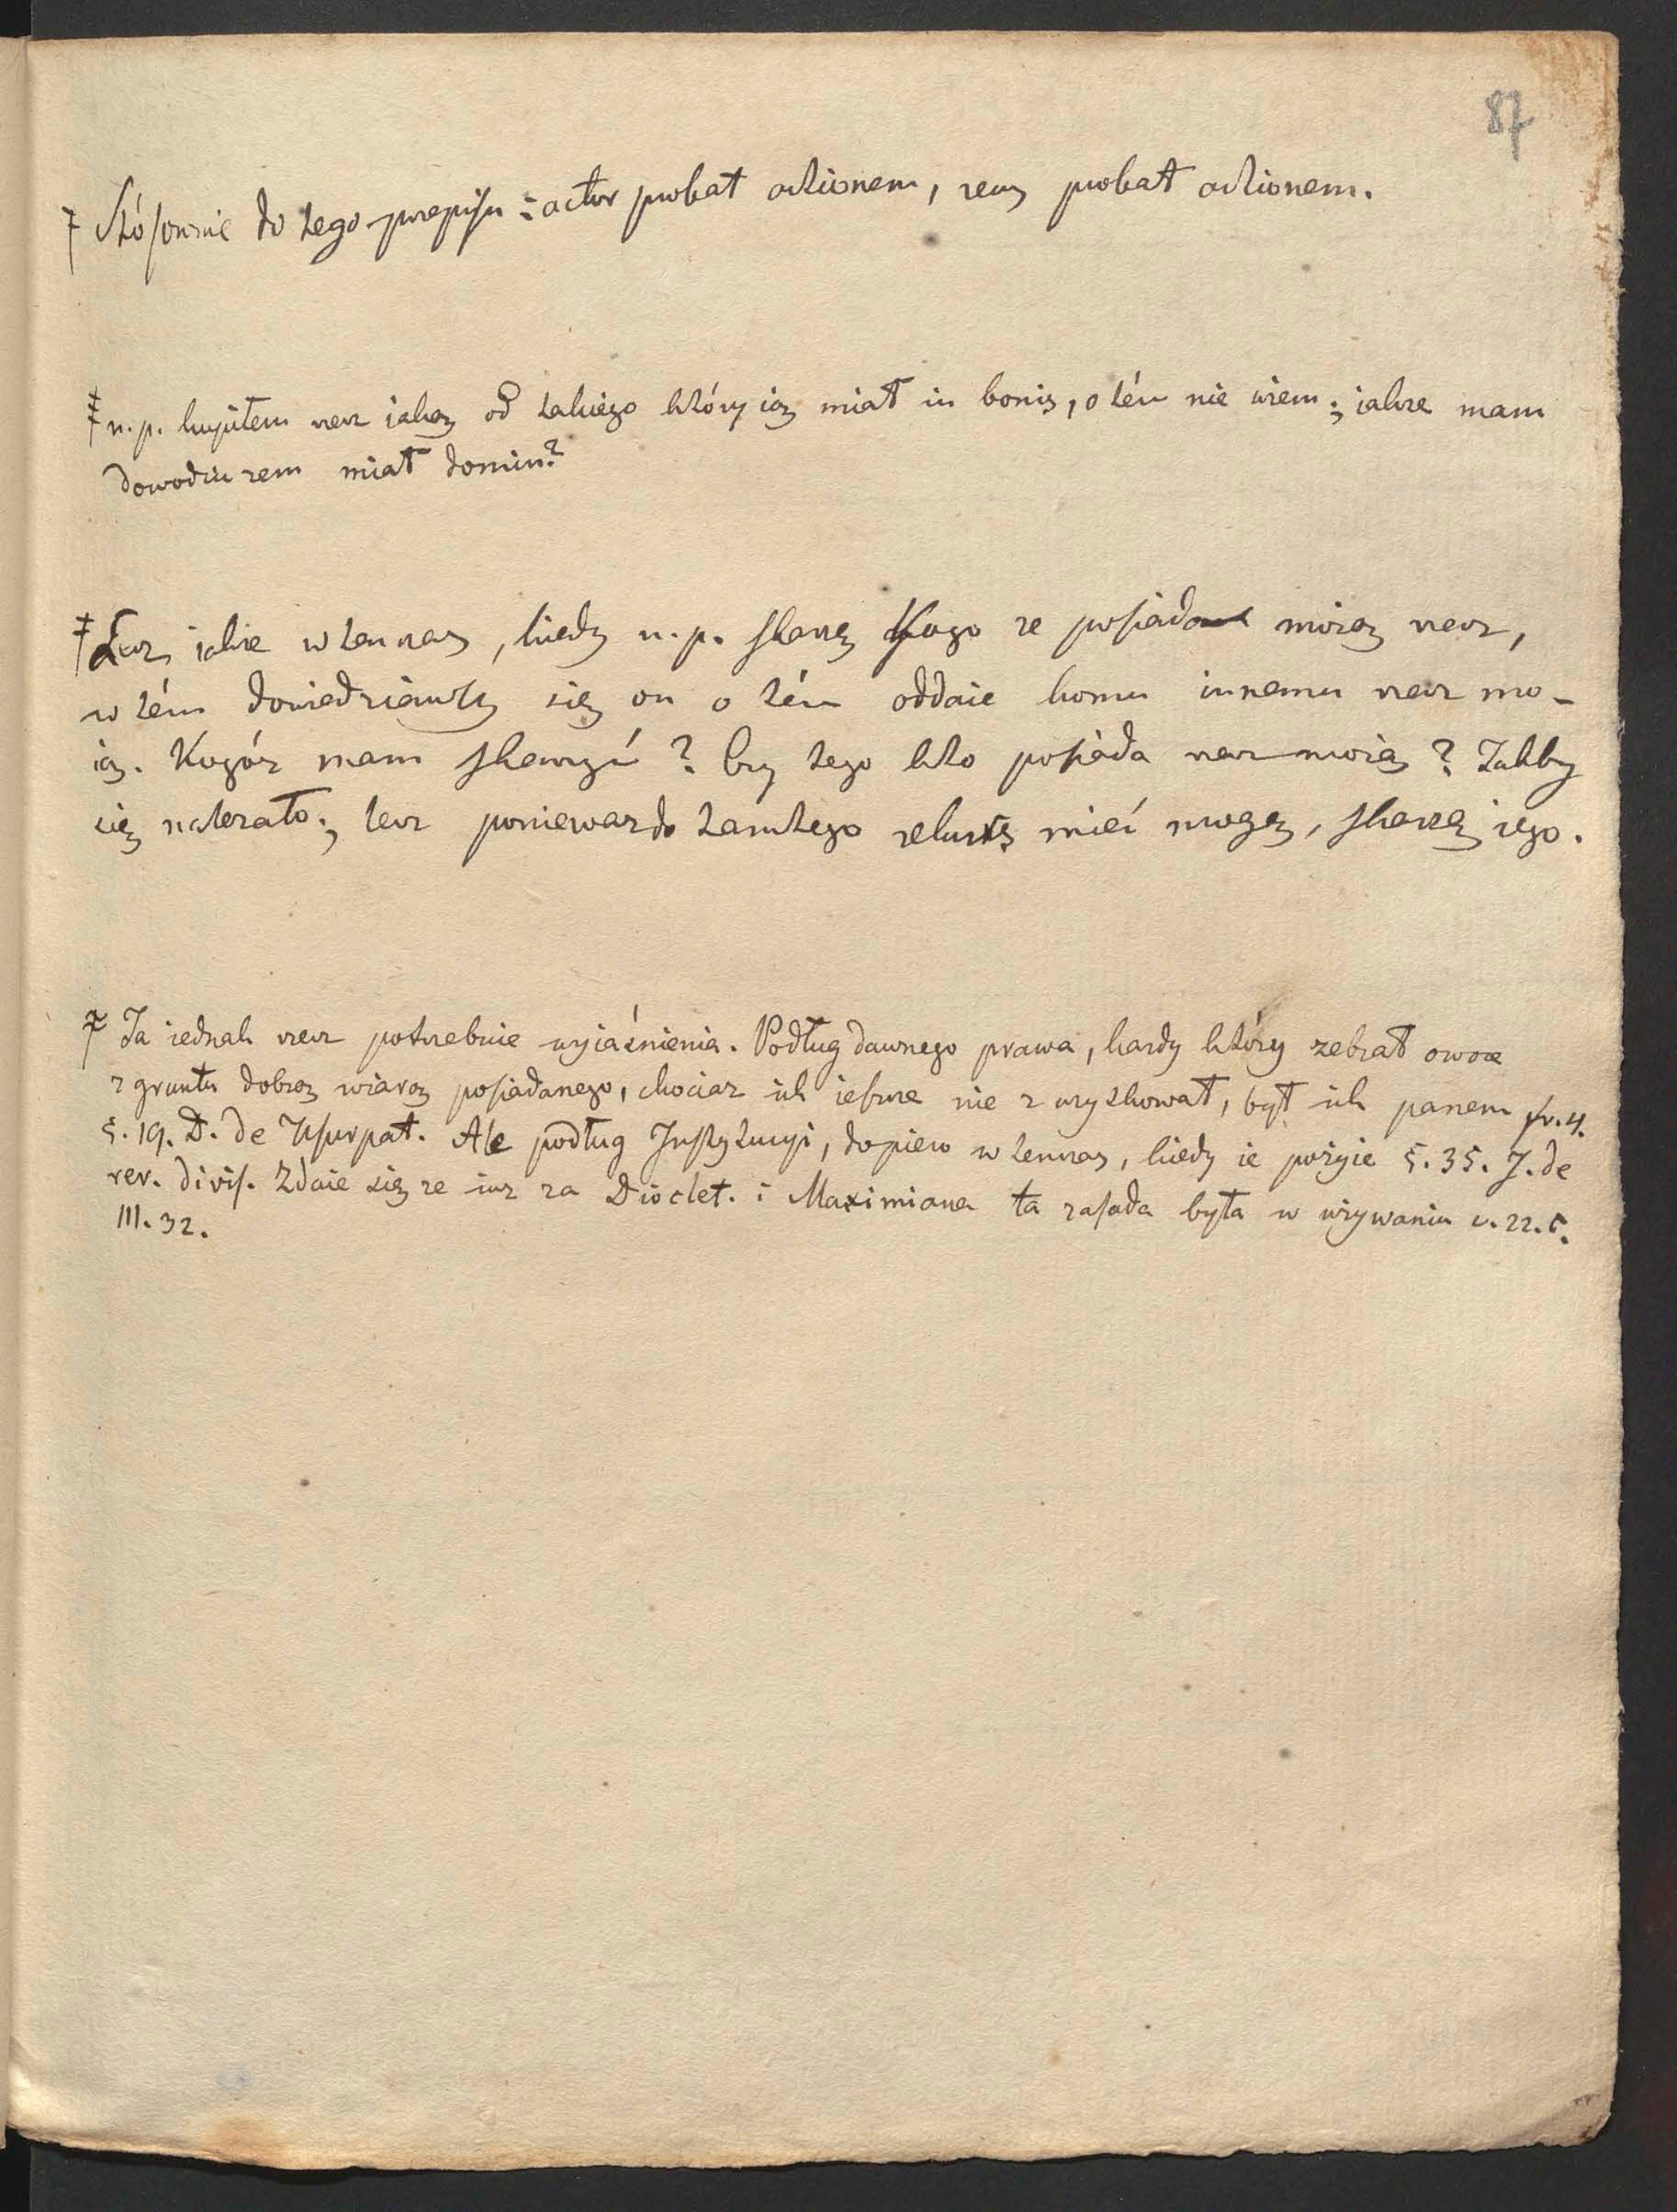 87
Stósownie do tego przepisu: actor probat actionem, reus probat actionem.
n.p. kupiłem rzecz iaką od takiego który ią miał in bonis, o tém nie wiem; iakże mam
dowodzić żem miał domin?
Lecz iakże wtenczas, kiedy n.p. skarżę Kogo że posiada moią rzecz,
w tém dowiedziawszy się on o tém oddaie komu innemu rzecz mo-
ią. Kogóż mam skarzyć? Czy tego kto posiada rzecz moią? Takby
się należało; lecz ponieważ do tamtego mieć mogę, skarżę iego.
Ta iednak rzecz potrzebuie wyiaśnienia. Podług dawnego prawa, każdy który zebrał owoce
z gruntu dobrą wiarą posiadanego, chociaż ich ieszcze nie zuzytkował, był ich panem fr. 4.
§. 19. D. de Usurpat. Ale podług Instytucyi, dopiero wtenczas, kiedy ie pożyie §. 35. J. de
rer. divis. Zdaie się że iuż za Dioclet. i Maximiana ta zasada była w używaniu c. 22. C.
III. 32.